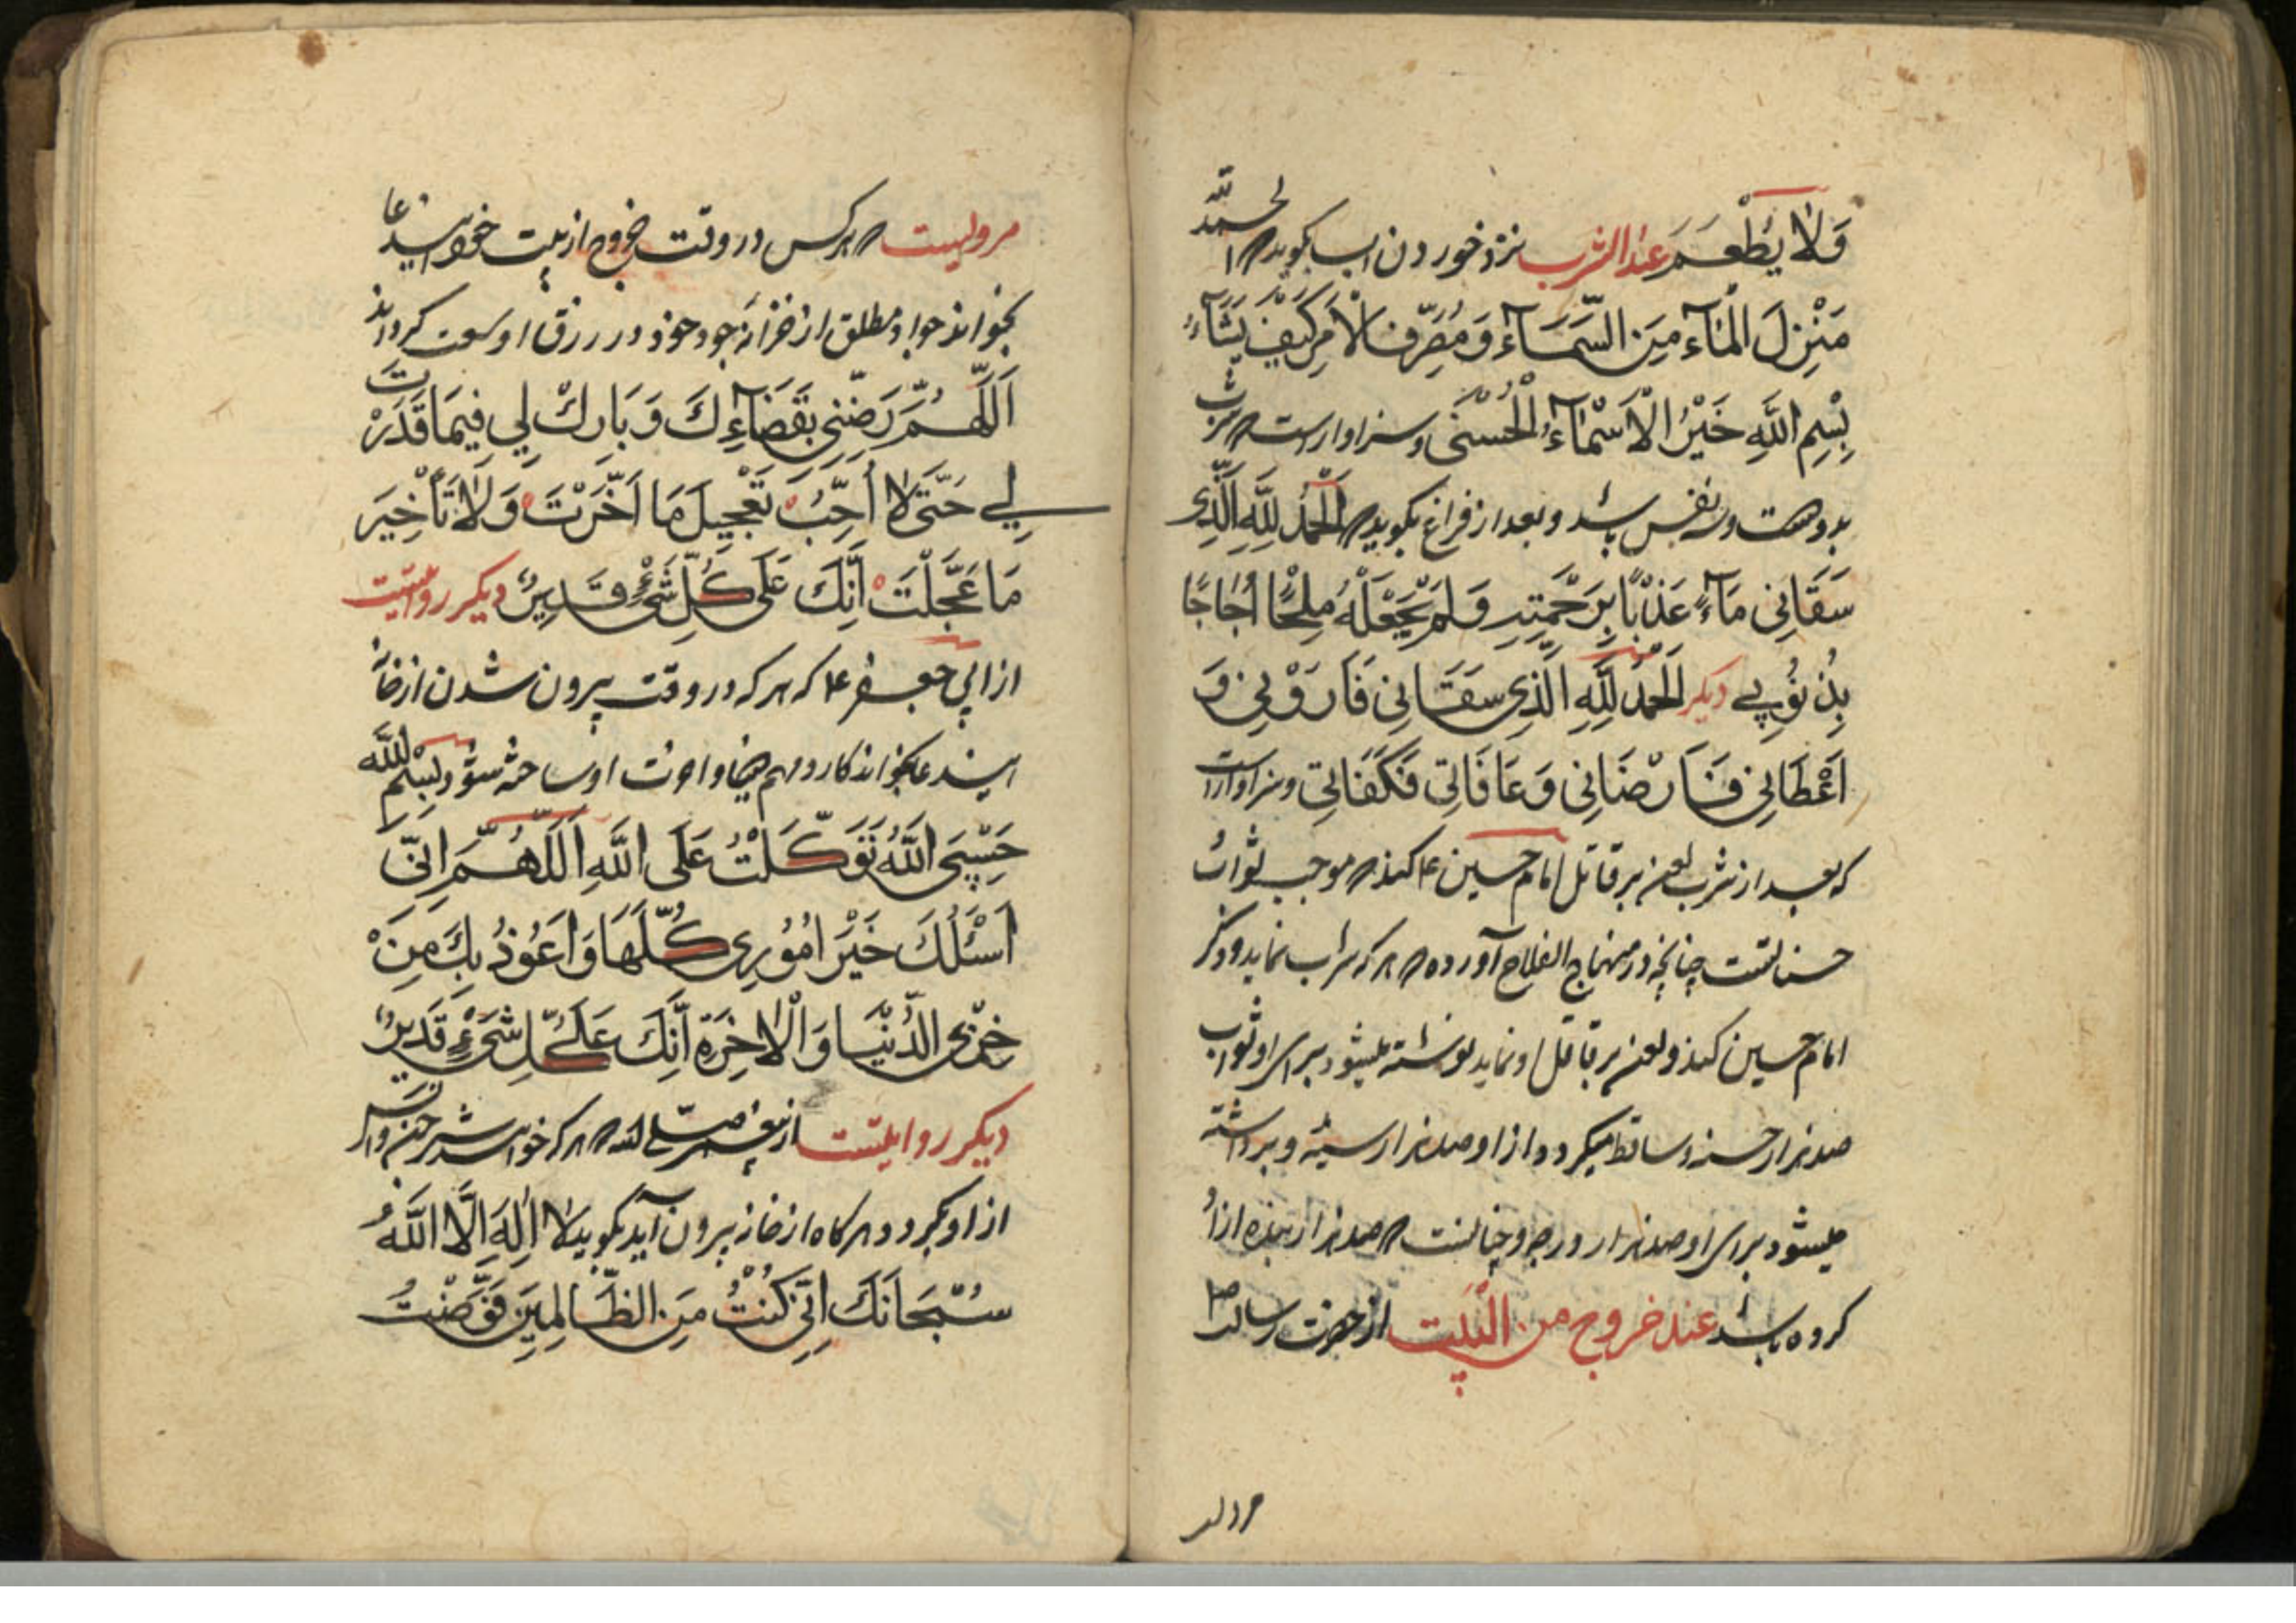 وَلَا يُطْعَمُ عند الشرب نزد خوردن اب بگوید که الحمد لله
مُنْزِلَ الْمَآءِ مِنَ السَّمَآءِ وَمُصَرِّفِ الْاَمْرِ كَيْفَ يَشَآءُ
بِسْمِ اللَّهِ خَيْرُ الْاَسْمَآءِ الْحُسْنَى وسزاوار است که شرب
بدو نفس باشد و بعد از فراغ بگوید که اَلْحَمْدُ لِلَّهِ الَّذِي
سَقَانِي مَآءً عَذْبًا بِرَحْمَتِهِ وَلَمْ يَجْعَلْهُ مِلْحًا اُجَاجًا
بِذُنُوبِي دیکر اَلْحَمْدُ لِلَّهِ الَّذِي سَقَانِي فَاَرْوَانِي وَ
اَعْطَانِي فَاَرْضَانِي وَعَافَانِي فَكَفَانِي وسزاوار است
که بعد از شرب لعن بر قاتل امام حسین ع کند که موجب ثواب
حسناتست چنانچه در منهاج الفلاح آورده که هر که شراب نماید و ذکر
امام حسین کند و لعن بر قاتل او نماید نوشته میشود برای او ثواب
صد هزار حسنه و ساقط میکردد از او صد هزار سیئه و برداشته
میشود برای او صد هزار درجه و چنانست که صد هزار بنده ازاد
کرده باشد عند خروج من البيت از حضرت رسالت ص
مرویست که هر کس در وقت خروج از بیت خود این دعا
بخواند جواد مطلق از خزانه جود خود در رزق او وسعت کرداند
اَللّٰهُمَّ رَضِّنِي بِقَضَآءِكَ وَبَارِكْ لِي فِيمَا قَدَّرْتَ
لِي حَتَّى لَا اُحِبَّ تَعْجِيلَ مَا اَخَّرْتَ وَلَا تَأْخِيرَ
مَا عَجَّلْتَ اِنَّكَ عَلَى كُلِّ شَيْءٍ قَدِيرٌ دیکر روایتیست
از ابی جعفر ع که هر که در وقت بیرون شدن از خانه
این دعا بخواند کار و مهم دنیا و اخرت او ساخته شود بِسْمِ اللَّهِ
حَسْبِيَ اللَّهُ تَوَكَّلْتُ عَلَى اللَّهِ اَللّٰهُمَّ اِنِّي
اَسْئَلُكَ خَيْرَ اُمُورِي كُلِّهَا وَاَعُوذُ بِكَ مِنْ
خِزْيِ الدُّنْيَا وَالْاٰخِرَةِ اِنَّكَ عَلَى كُلِّ شَيْءٍ قَدِيرٌ
دیکر روایتست از پیغمبر صلی الله که هر که خواهد شر جن و انس
از او بگردد هر کاه از خانه بیرون آید بگوید لَا اِلٰهَ اِلَّا اللَّهُ
سُبْحَانَكَ اِنِّي كُنْتُ مِنَ الظَّالِمِينَ فَوَّضْتُ